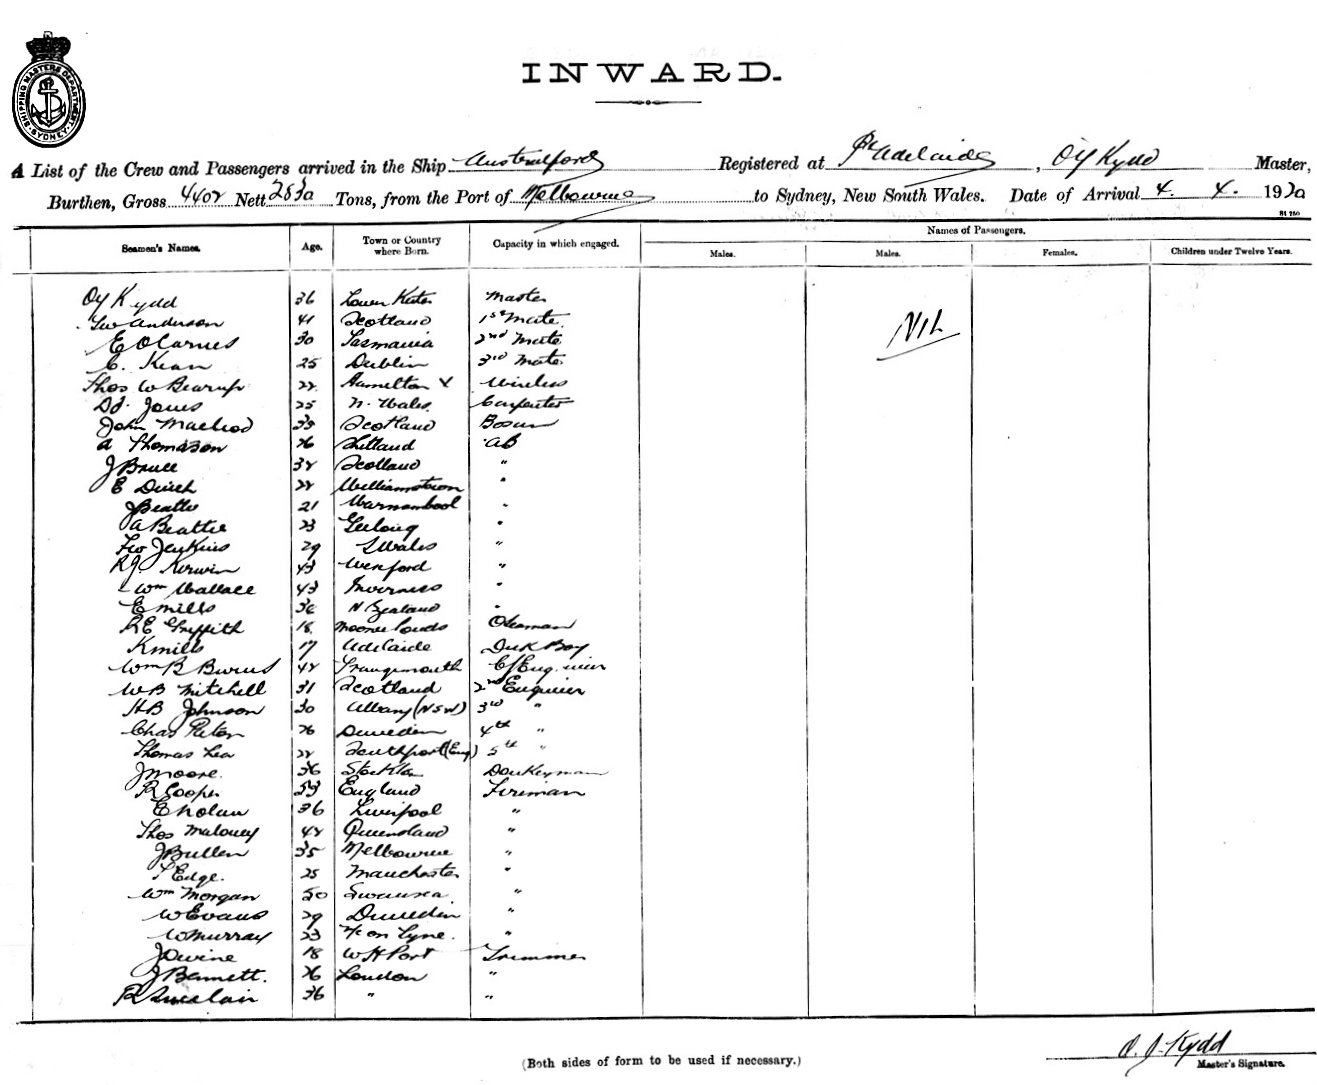 SHIPPING MASTERS DEPARTMENT SYDNEY
INWARD.
A List of the Crew and Passengers arrived in the Ship Australford Registered at Pt Adelaide, O J Kydd Master,
Burthen, Gross 4402 Nett Tons, from the Port of Melbourne to Sydney, New South Wales. Date of Arrival 4. 4. 19
Seamen's Names. Age. Town or Country where Born. Capacity in which engaged. Names of Passengers.
Males. Males. Females. Children under Twelve Years.
O J Kydd 36 Master
Geo Anderson 41 Scotland 1st Mate
30 Tasmania 2nd Mate Nil
C. Kean 25 Dublin 3rd Mate
Thos W Bearup 22 Hamilton V Wireless
Jones 25 N. Wales Carpenter
John Macleod Scotland Bosun
A Thomason 26 Shetland AB
J Bruce 32 Scotland "
E 22 Williamstown "
J Beattie 21 Warnambool "
A Beattie 23 Geelong "
Geo Jenkins 29 S Wales "
R J Kerwin 43 Wexford "
Wm Wallace 43 Inverness "
E Mills N Zealand "
R E Griffith 18 Moonee Ponds
K Mills 17 Adelaide Deck Boy
Wm R Burns 42 Grangemouth Cf Engineer
W B Mitchell 31 Scotland 2nd Engineer
H B Johnson 30 Albany (NSW) 3rd "
Chas Paton 26 Dunedin 4th "
Thomas Lea 22 Southport (Eng) 5th "
J Moore 36 Stockton Donkeyman
R Cooper 53 England Fireman
E Nolan 36 Liverpool "
Thos Maloney 42 Queensland "
J Bullen 35 Melbourne "
T Edge. 25 Manchester "
Wm Morgan 50 Swansea "
W Evans 29 Dunedin "
W Murray 23 N on Tyne. "
J Devine 18 W H Port Trimmer
J Bennett. 26 London "
R Sinclair 36 " "
(Both sides of form to be used if necessary.)
O. J. Kydd
Master's Signature.